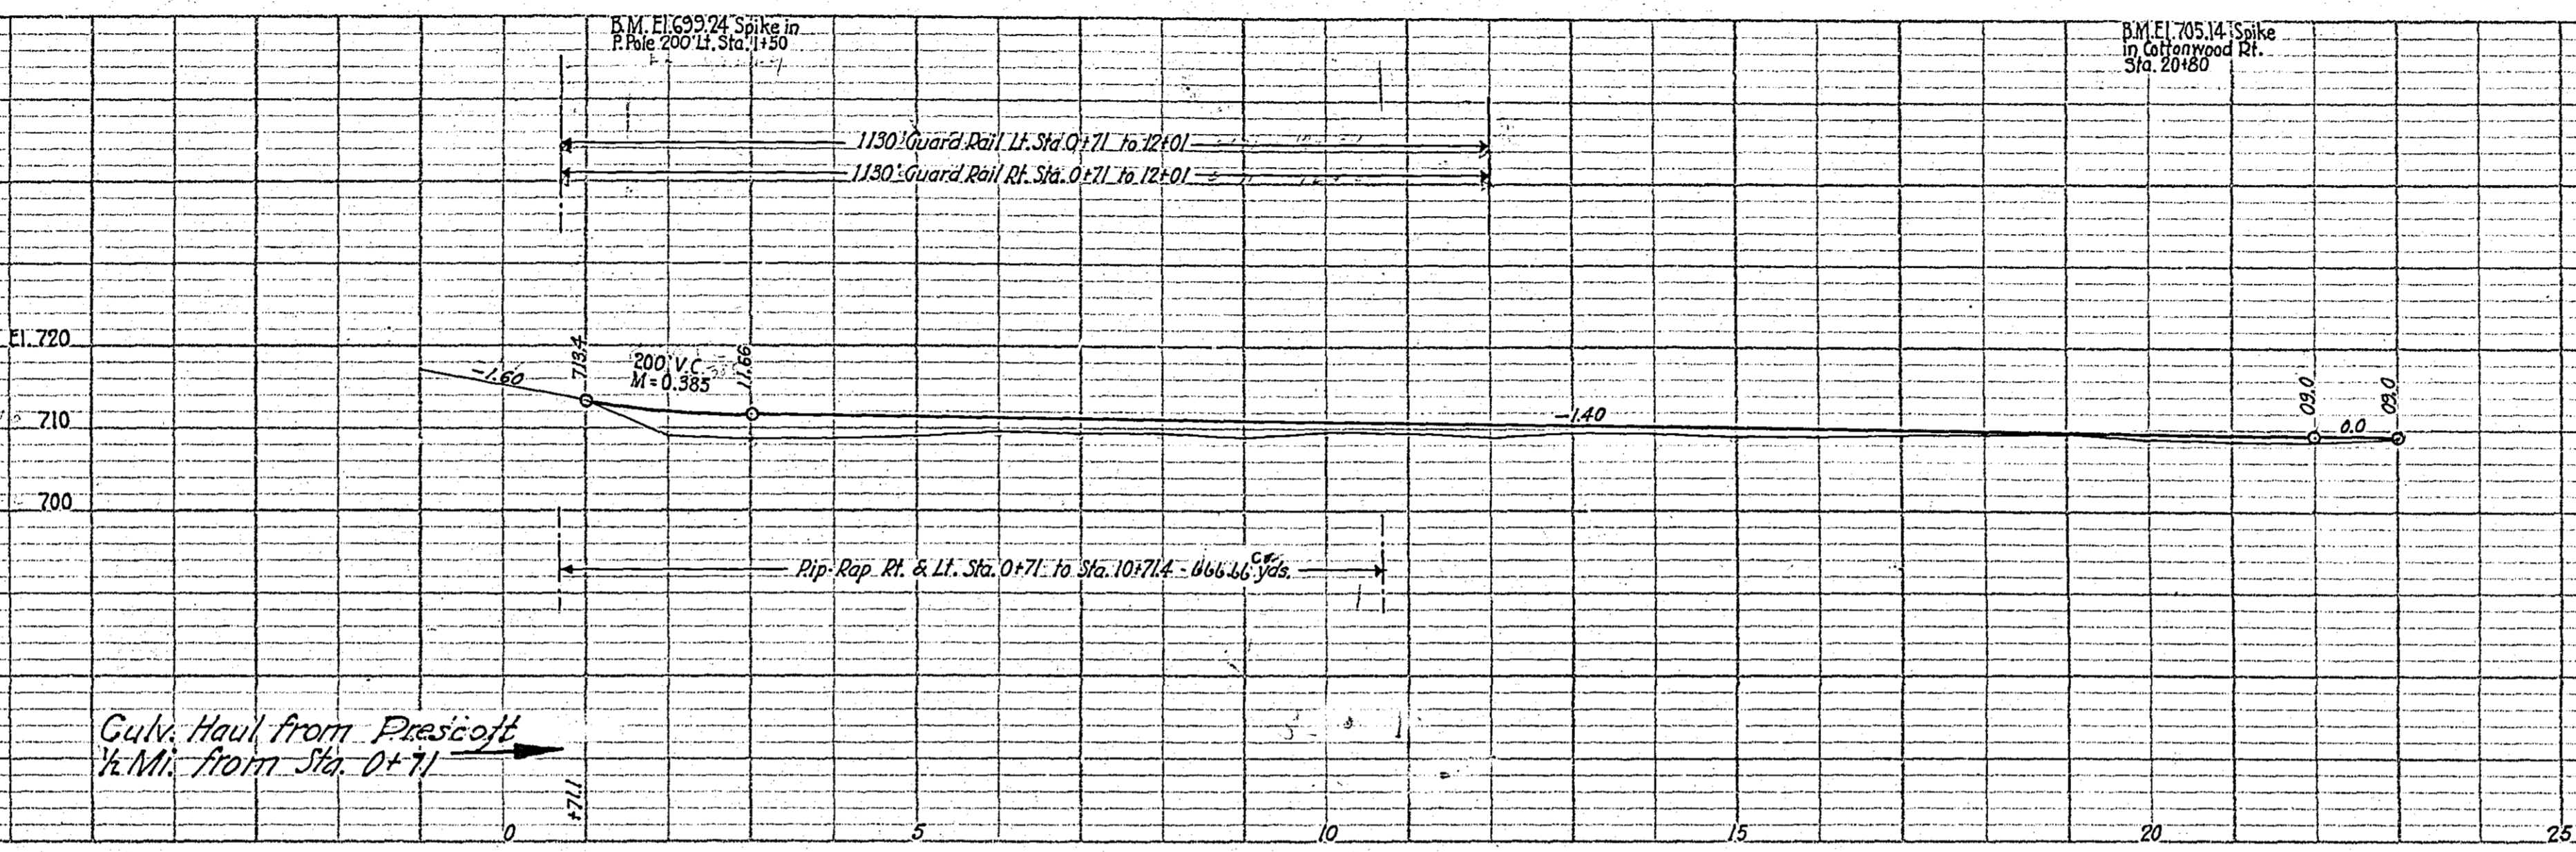 B.M. El. 699.24 Spike in
P. Pole 200' Lt. Sta. 1+50
B.M. El. 705.14 Spike
in Cottonwood Rt.
Sta. 20+80
1130' Guard Rail Lt. Sta. 0+71 to 12+01
1130' Guard Rail Rt. Sta. 0+71 to 12+01
El. 720
-1.60
713.4
200' V.C.
M = 0.385
11.66
710
-1.40
09.0
0.0
09.0
700
Rip-Rap Rt. & Lt. Sta. 0+71 to Sta. 10+71.4 - 666.66 yds.
Culv. Haul from Prescott
½ Mi. from Sta. 0+71
+71.1
0 5 10 15 20 25